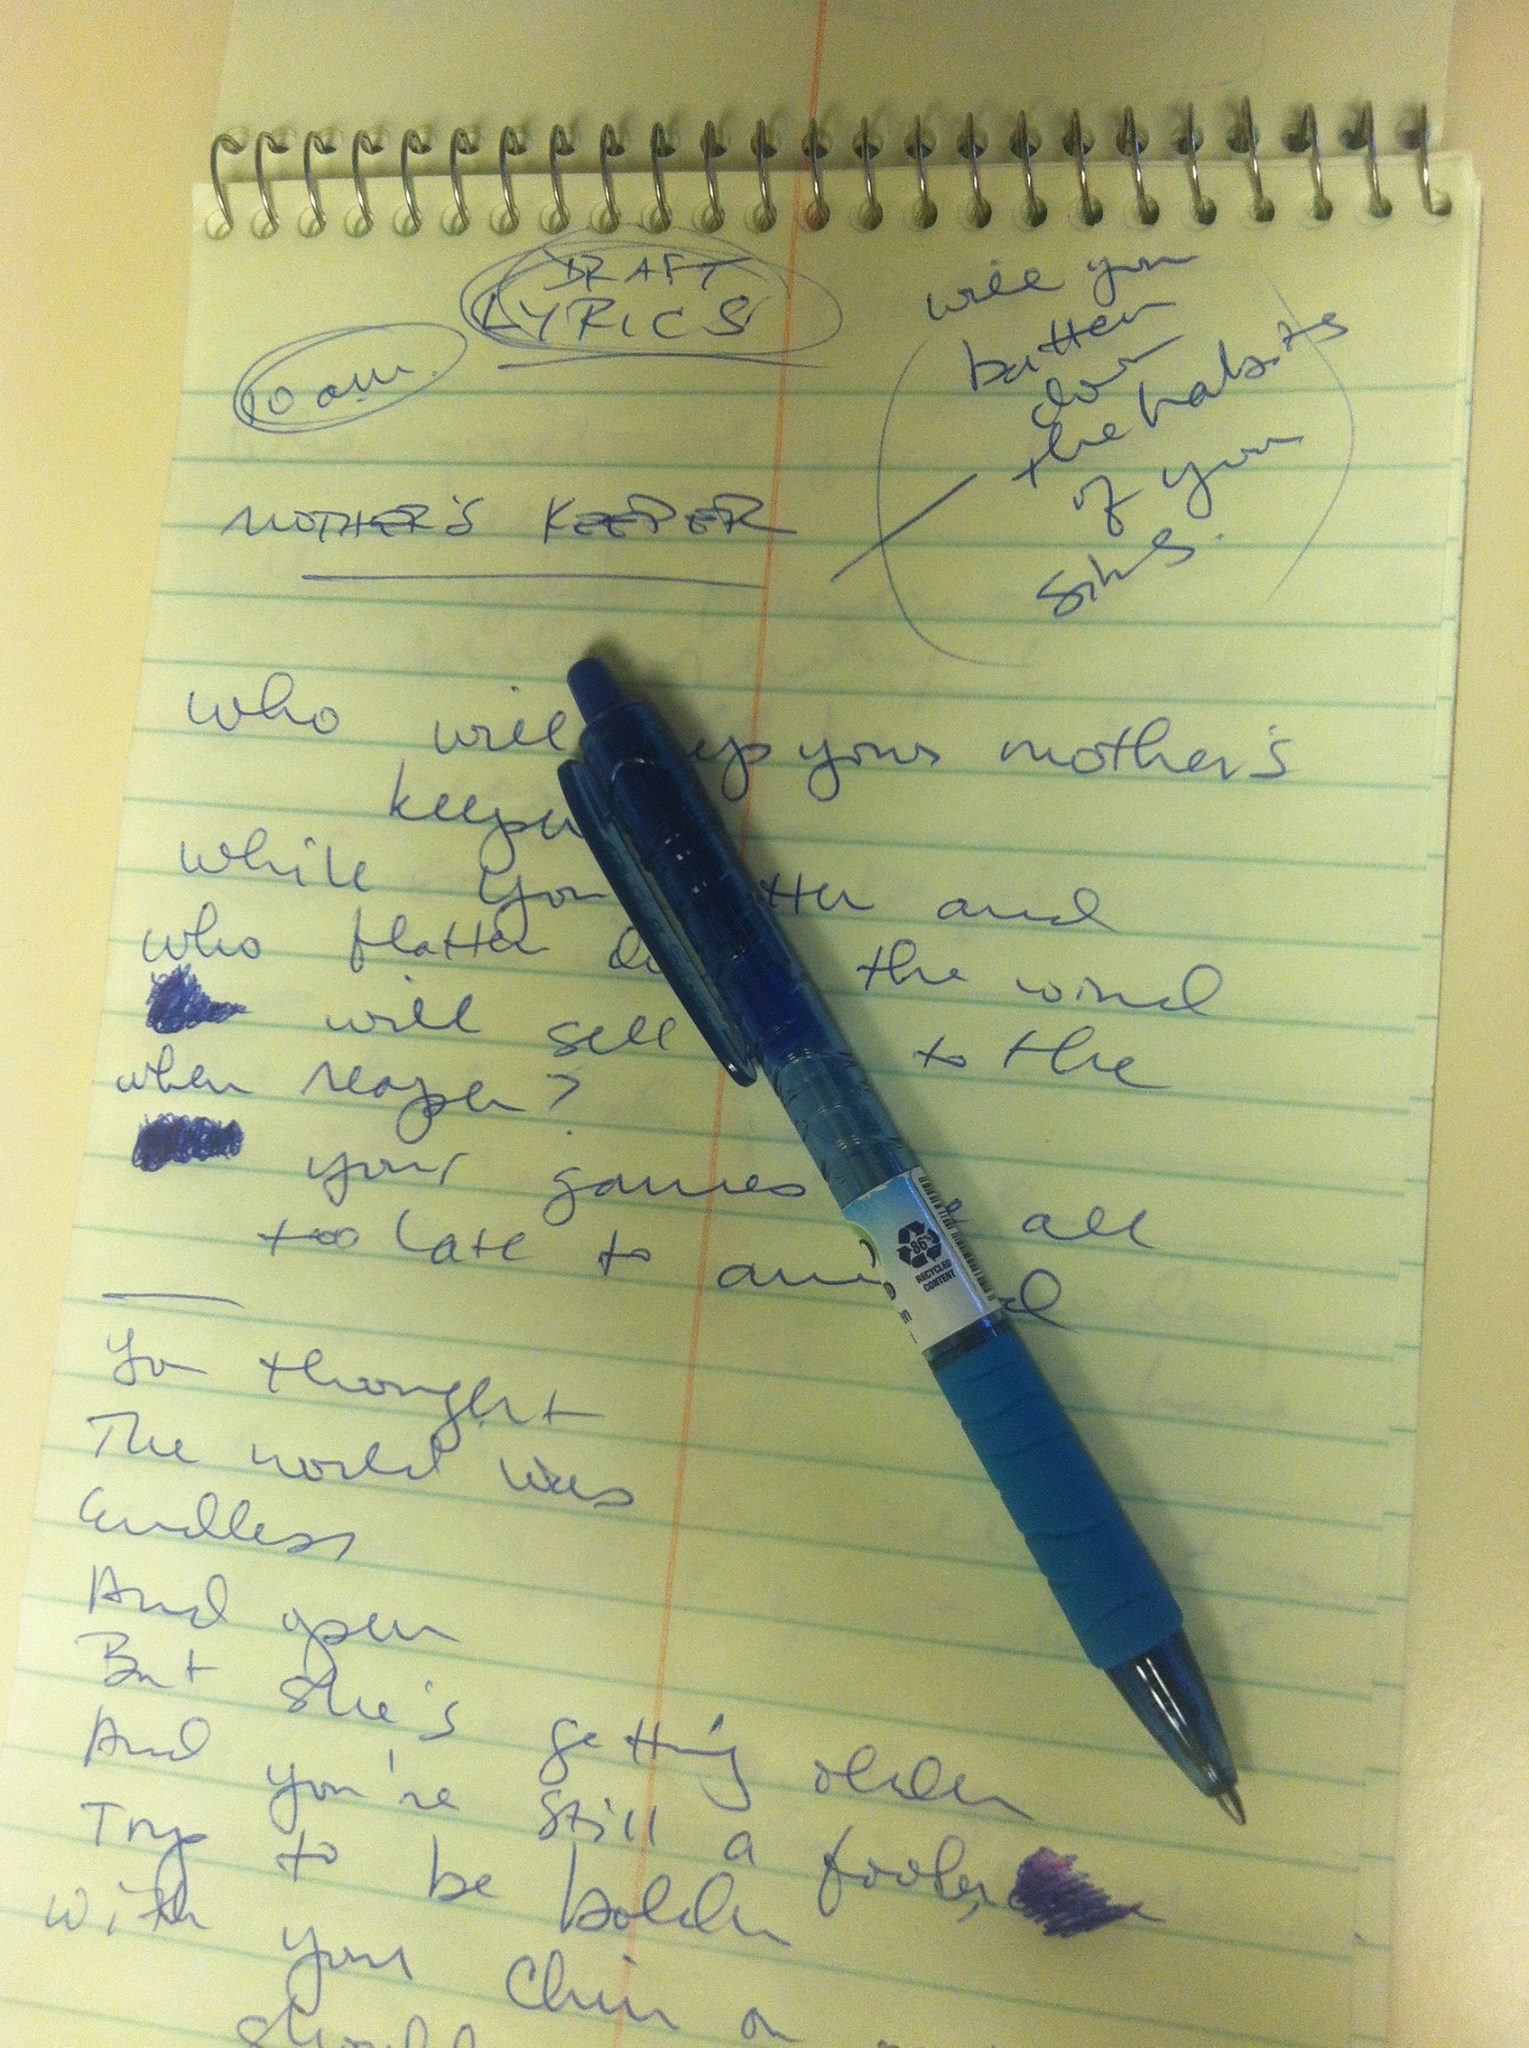 DRAFT
LYRICS
10 am.
will you
batten
down
the habits
of your
sins.
MOTHER'S KEEPER
who will your mother's
keeper
while you and
who flatten the wind
will sell to the
when reaper?
your games all
too late to
You thought
The world was
Endless
And open
But she's getting older
And you're still a fooler,
Try to be bolder
With your chin on
86%
RECYCLED
CONTENT